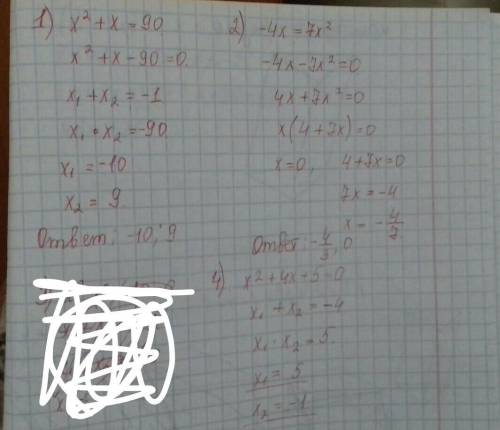 1) x² + x = 90
x² + x - 90 = 0
x₁ + x₂ = -1
x₁ • x₂ = -90
x₁ = -10
x₂ = 9
Ответ: -10; 9
2) -4x = 7x²
-4x - 7x² = 0
4x + 7x² = 0
x(4 + 7x) = 0
x = 0, 4 + 7x = 0
7x = -4
x = -4/7
Ответ: -4/7, 0
4) x² + 4x + 5 = 0
x₁ + x₂ = -4
x₁ · x₂ = 5
x₁ = 5
x₂ = -1